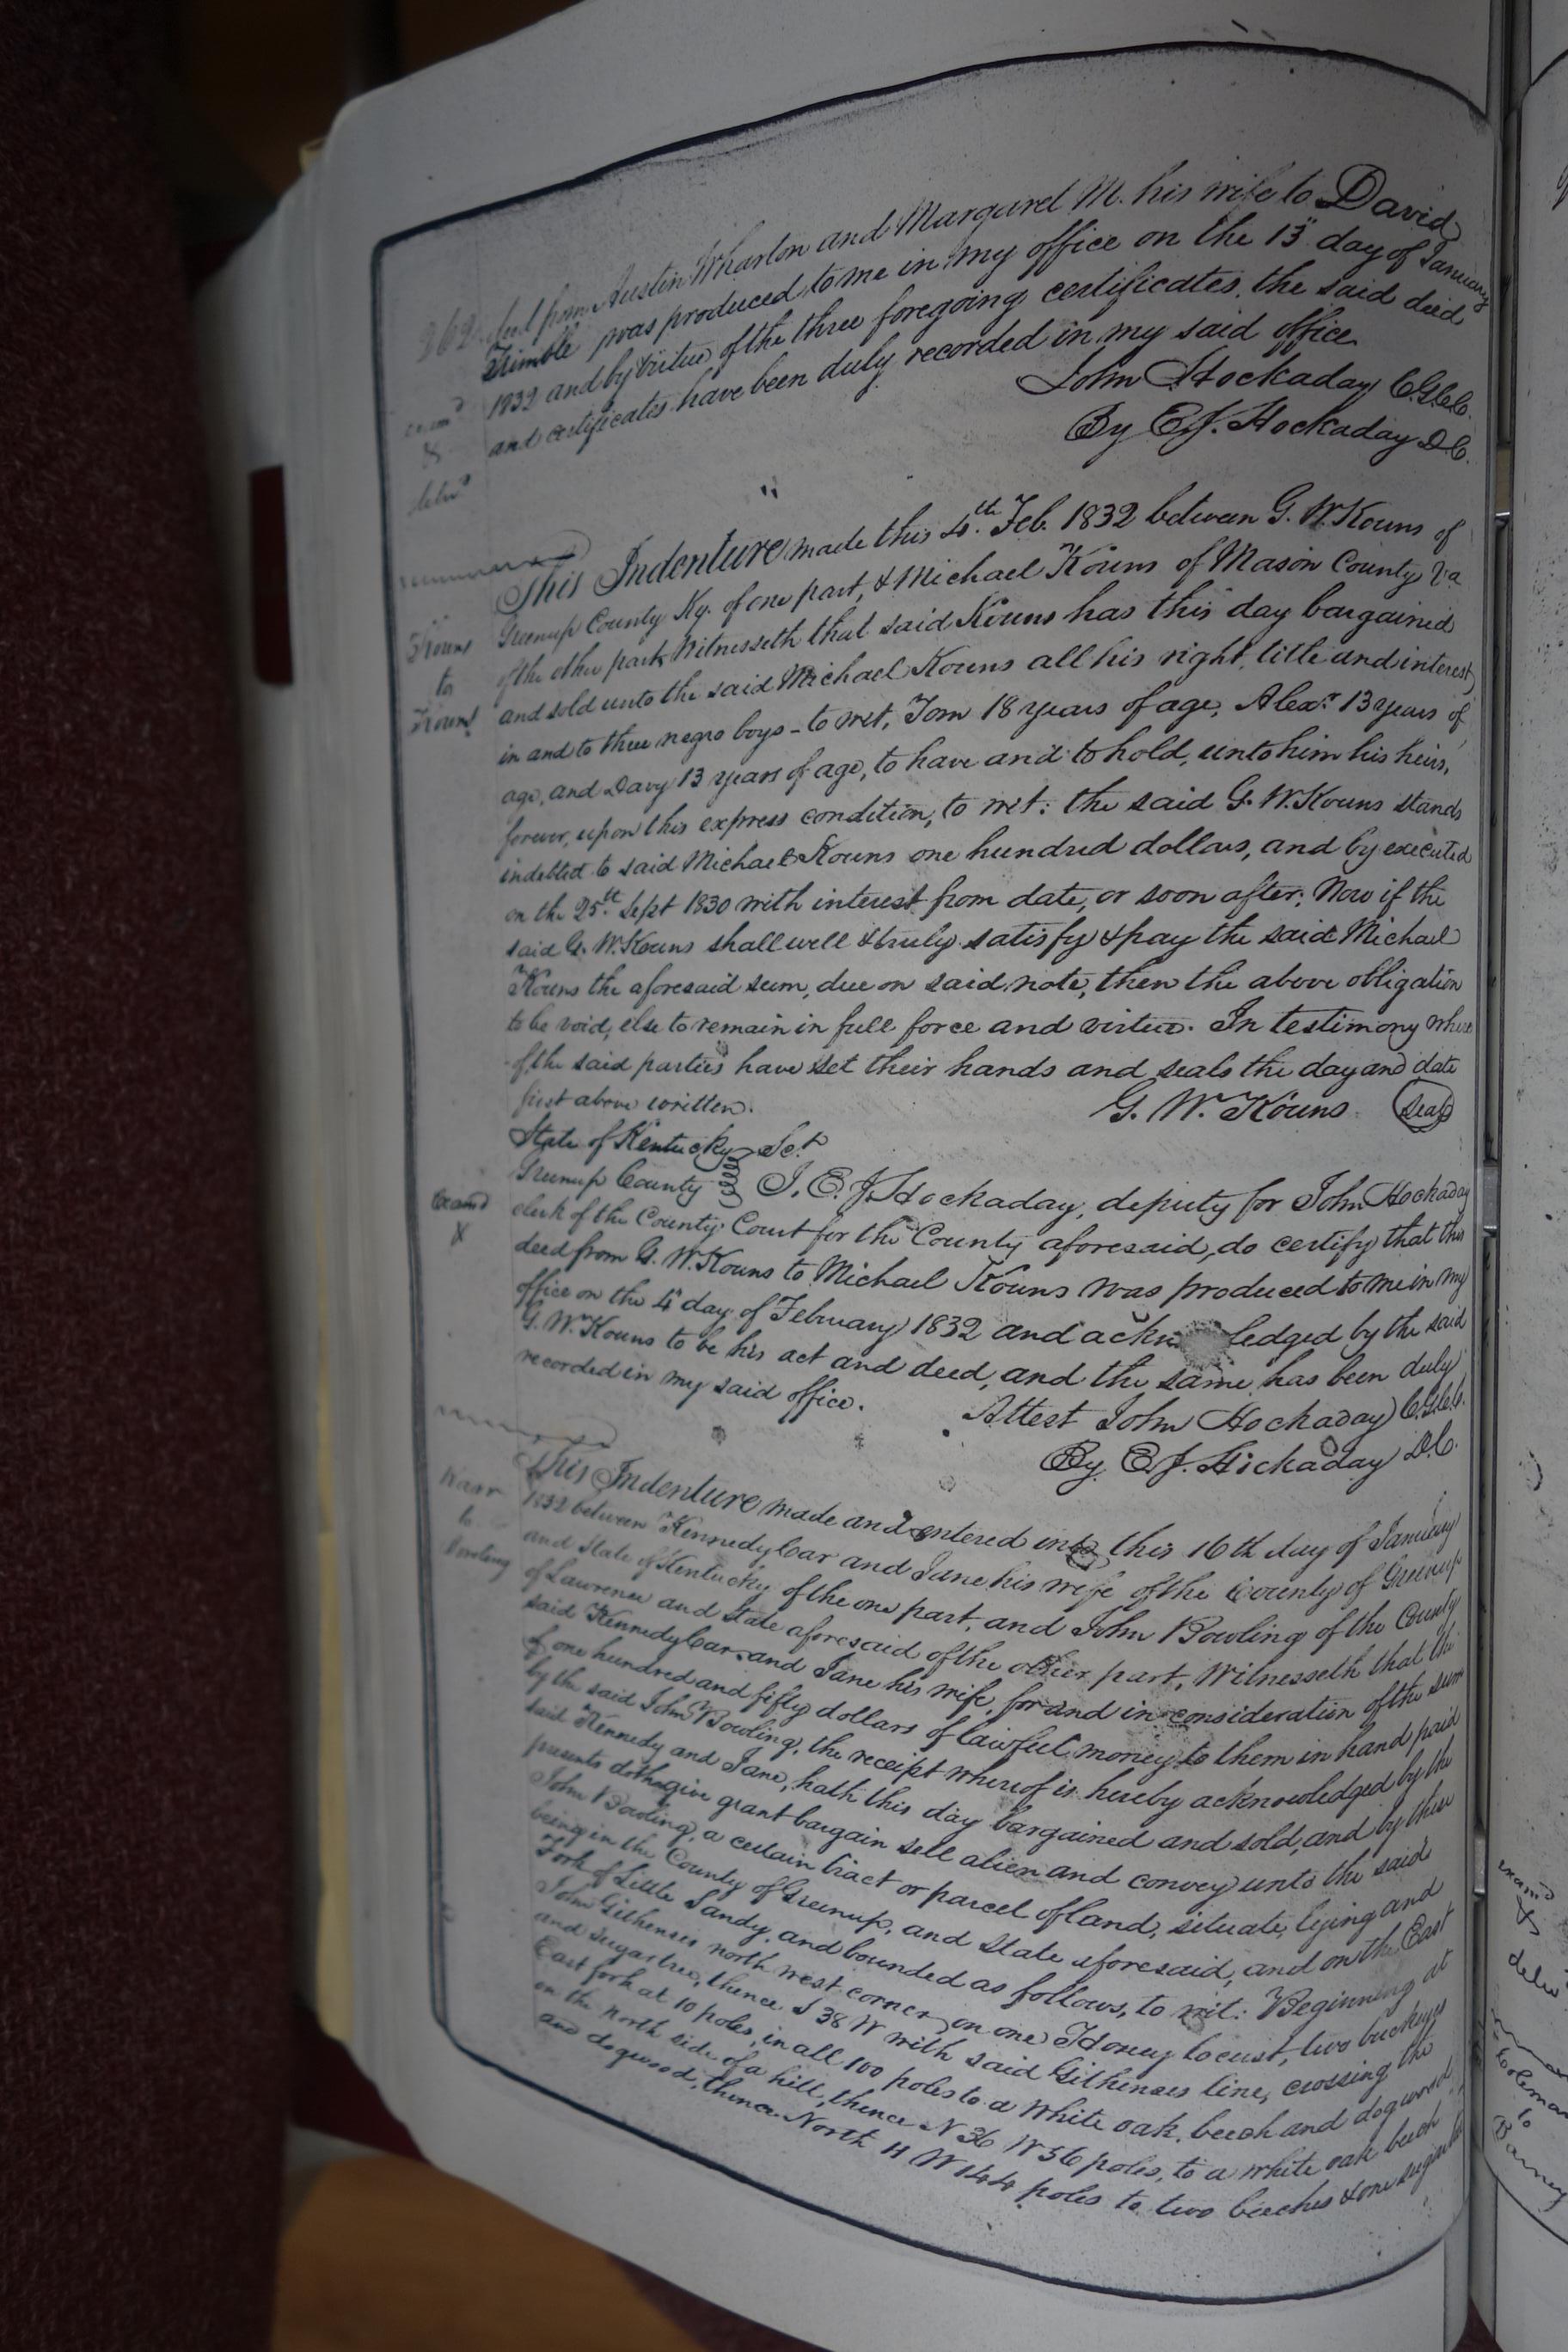 262
deed from Austin Wharton and Margaret M. his wife to David
Trimble was produced to me in my office on the 13 day of January
1832 and by virtue of the three foregoing certificates, the said deed
and certificates have been duly recorded in my said office
John Hockaday C.G.C.C.
By E.J. Hockaday D.C.
This Indenture made this 4th. Feb. 1832 between G. W. Kouns of
Greenup County Ky. of one part, & Michael Kouns of Mason County Va
Kouns to Kouns
of the other part, Witnesseth that said Kouns has this day bargained
and sold unto the said Michael Kouns all his right, title and interest
in and to three negro boys - to wit, Tom 18 years of age, Alexr. 13 years of
age, and Davy 13 years of age, to have and to hold, unto him his heirs,
forever, upon this express condition, to wit: the said G. W. Kouns stands
indebted to said Michael Kouns one hundred dollars, and by executed
on the 25th. Sept 1830 with interest from date, or soon after; Now if the
said G. W. Kouns shall well & truly satisfy & pay the said Michael
Kouns the aforesaid sum, due on said note, then the above obligation
to be void, else to remain in full force and virtue. In testimony where
of the said parties have set their hands and seals the day and date
first above written.
G. W. Kouns Seal
State of Kentucky Sct
Greenup County I, E. J. Hockaday, deputy for John Hockaday
Examd X
clerk of the County Court for the County aforesaid, do certify that this
deed from G. W. Kouns to Michael Kouns was produced to me in my
office on the 4 day of February 1832 and ackn ledged by the said
G. W. Kouns to be his act and deed, and the same has been duly
recorded in my said office.
Attest John Hockaday C.G.C.C.
By E. J. Hockaday D.C.
This Indenture made and entered into this 16th day of January
Karr to Bowling
1832 between Kennedy Car and Jane his wife of the County of Greenup
and State of Kentucky of the one part, and John Bowling of the County
of Lawrence and State aforesaid of the other part, Witnesseth that the
said Kennedy Car and Jane his wife, for and in consideration of the sum
of one hundred and fifty dollars of lawful money to them in hand paid
by the said John Bowling, the receipt whereof is hereby acknowledged by the
said Kennedy and Jane, hath this day bargained and sold, and by these
presents doth give grant bargain sell alien and convey unto the said
John Bowling, a certain tract or parcel of land, situate, lying and
being in the County of Greenup, and State aforesaid, and on the East
Fork of Little Sandy, and bounded as follows, to wit: Beginning at
John Githenses north west corner, on one Honey locust, two buckeyes
and sugartree, thence S 38 W with said Githenses line, crossing the
East fork at 10 poles, in all 100 poles to a White oak, beech and dogwood,
on the north side of a hill, thence N 36 W 56 poles, to a white oak beech
and dogwood, thence North 11 W 144 poles to two beeches & one
examd X
delivd
to